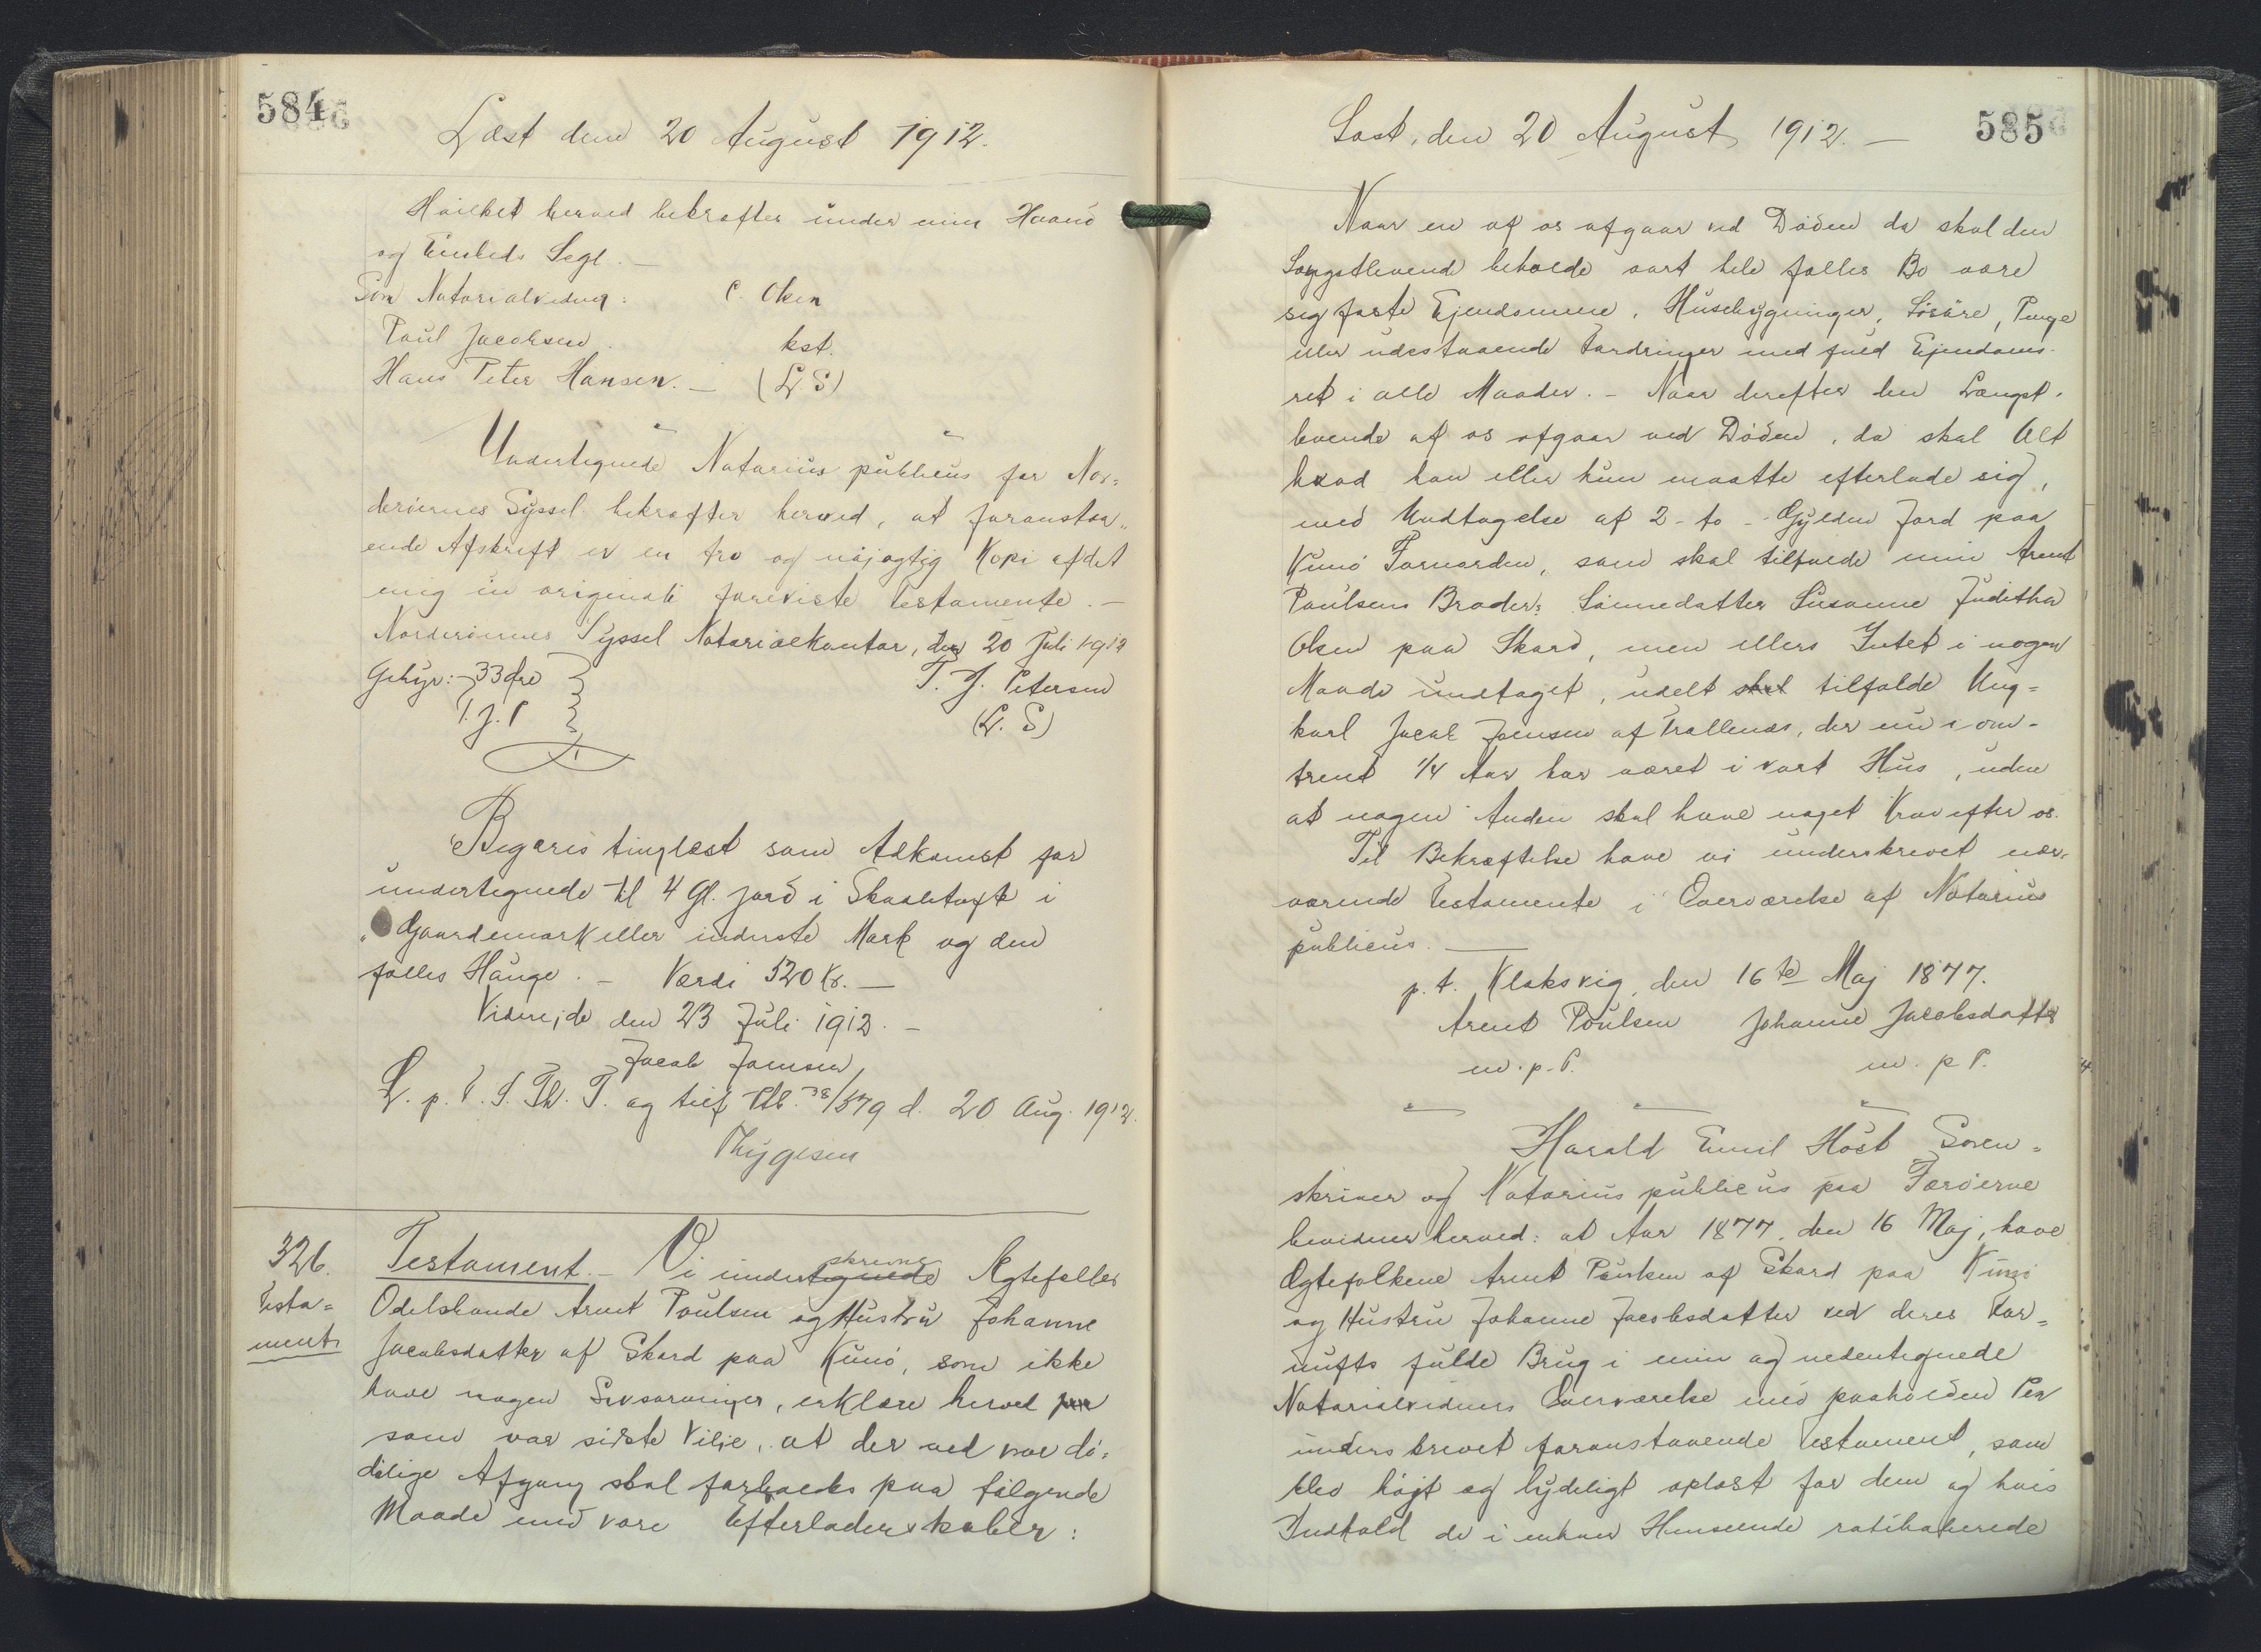 584
Læst den 20 August 1912.
Hvilket herved bekræftes under min Haand
og Embeds Segl. —
Som Notarialvidner: C. Oken
Poul Jacobsen. kst.
Hans Peter Hansen. — (L. S)
Undertegnede Notarius publicus for Nor=
derøernes Syssel bekræfter herved, at foranstaa„
ende Afskrift er en tro og nøjagtig Kopi af det
mig in originali foreviste Testamente. —
Norderøernes Syssel Notarialkontor, den 20 Juli 1912
Gebyr: 33 Øre T. J. Petersen
T. J. P (L. S)
Begæres tinglæst som Adkomst for
undertegnede til 4 Gl. Jord i Skaaletoft i
Gaardemark eller inderste Mark og den
fælles Hauge. — Værdi 520 Kr. —
Videreide den 23 Juli 1912. —
Jacob Joensen
L. p. V. S. Th. T. og tilf. Utb. 38/579 d. 20 Aug. 1912.
Thygesen
326.
Testa=
ment.
Testament. — Vi undertegnede skrevne Ægtefæller
Odelsbonde Arent Poulsen og Hustru Johanne
Jacobsdatter af Skard paa Kunø, som ikke
have nogen Livsarvinger, erklære herved for
som vor sidste Vilje, at der ved vor dö=
delige Afgang skal forholdes paa følgende
Maade med vore Efterladenskaber:
585
Læst, den 20 August 1912. —
Naar en af os afgaar ved Døden da skal den
Længstlevende beholde vort hele fælles Bo være
sig faste Ejendomme, Husebygninger, Løsøre, Penge
eller udestaaende Fordringer med fuld Ejendoms-
ret i alle Maader. — Naar derefter den Længst-
levende af os afgaar ved Døden, da skal Alt
hvad han eller hun maatte efterlade sig,
med Undtagelse af 2 - to - Gylden Jord paa
Kunø Fornorden, som skal tilfalde min Arent
Poulsens Broders Sønnedatter Susanne Juditha
Olsen paa Skard, men ellers Intet i nogen
Maade undtaget, udelt skal tilfalde Ung=
karl Jacob Joensen af Trøllenæs, der nu i om-
trent 1/4 Aar har været i vort Hus, uden
at nogen Anden skal have noget Krav efter os.
Til Bekræftelse have vi underskrevet nær-
værende Testamente i Overværelse af Notarius
publicus. —
p. t. Klaksvig, den 16te Maj 1877.
Arent Poulsen Johanne Jacobsdatter
m. p. P. m. p. P.
Harald Emil Høst Soren=
skriver og Notarius publicus paa Færøerne
bevidner herved: at Aar 1877 den 16 Maj, have
Ægtefolkene Arent Poulsen af Skard paa Kunø
og Hustru Johanne Jacobsdatter ved deres For=
nufts fulde Brug i min og nedentegnede
Notarialvidners Overværelse med paaholden Pen
underskrevet foranstaaende Testament, som
blev højt og lydeligt oplæst for dem og hvis
Indhold de i enhver Henseende ratihaberede